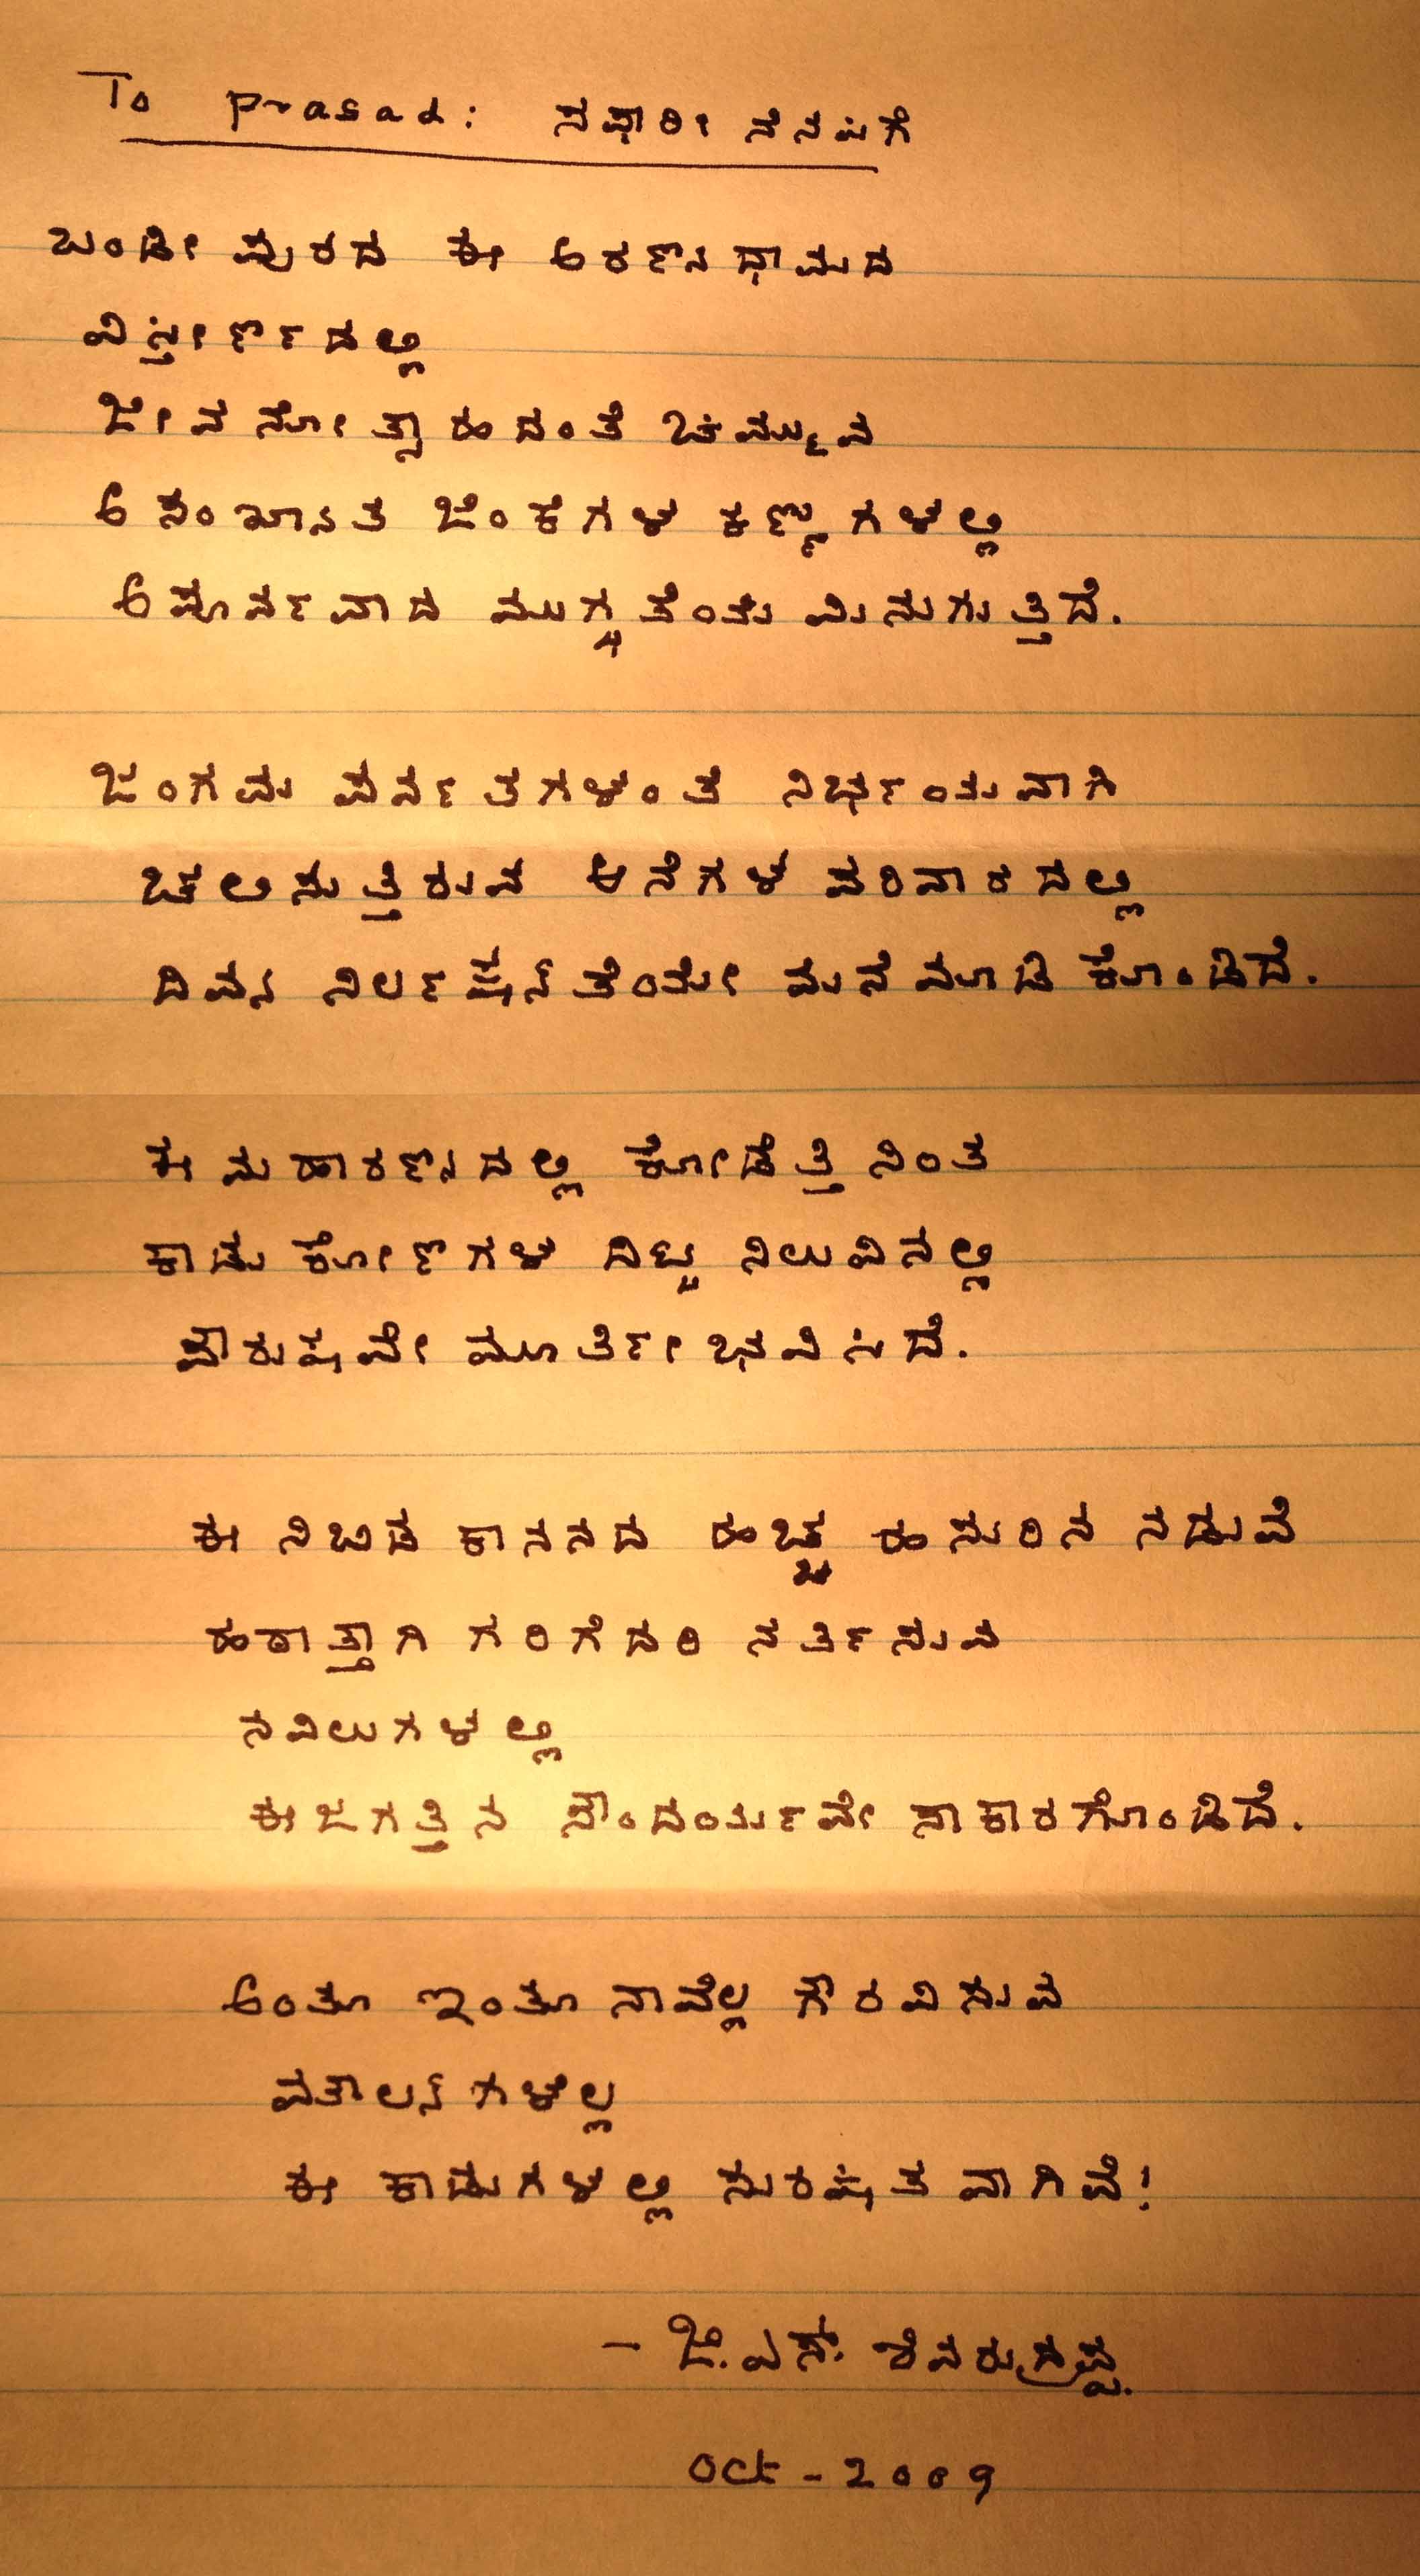 To prasad: ಸಫಾರೀ ನೆನಪಿಗೆ
ಬಂಡೀಪುರದ ಈ ಅರಣ್ಯಧಾಮದ
ವಿಸ್ತೀರ್ಣದಲ್ಲಿ
ಜೀವನೋತ್ಸಾಹದಂತೆ ಚಿಮ್ಮುವ
ಅಸಂಖ್ಯಾತ ಜಿಂಕೆಗಳ ಕಣ್ಣುಗಳಲ್ಲಿ
ಅಪೂರ್ವವಾದ ಮುಗ್ಧತೆಯು ಮಿನುಗುತ್ತಿದೆ.
ಜಂಗಮ ಪರ್ವತಗಳಂತೆ ನಿರ್ಭಯವಾಗಿ
ಚಲಿಸುತ್ತಿರುವ ಆನೆಗಳ ಪರಿವಾರದಲ್ಲಿ
ದಿವ್ಯ ನಿರ್ಲಕ್ಷ್ಯತೆಯೇ ಮನೆ ಮಾಡಿಕೊಂಡಿದೆ.
ಈ ಮಹಾರಣ್ಯದಲ್ಲಿ ಕೋಡೆತ್ತಿ ನಿಂತ
ಕಾಡುಕೋಣಗಳ ದಿಟ್ಟ ನಿಲುವಿನಲ್ಲಿ
ಪೌರುಷವೇ ಮೂರ್ತೀಭವಿಸಿದೆ.
ಈ ನಿಬಿಡ ಕಾನನದ ಹಚ್ಚ ಹಸುರಿನ ನಡುವೆ
ಹಠಾತ್ತಾಗಿ ಗರಿಗೆದರಿ ನರ್ತಿಸುವ
ನವಿಲುಗಳಲ್ಲಿ
ಈ ಜಗತ್ತಿನ ಸೌಂದರ್ಯವೇ ಸಾಕಾರಗೊಂಡಿದೆ.
ಅಂತೂ ಇಂತೂ ನಾವೆಲ್ಲ ಗೌರವಿಸುವ
ಮೌಲ್ಯಗಳೆಲ್ಲ
ಈ ಕಾಡುಗಳಲ್ಲಿ ಸುರಕ್ಷಿತವಾಗಿವೆ!
- ಜಿ.ಎಸ್. ಶಿವರುದ್ರಪ್ಪ.
Oct - 2009